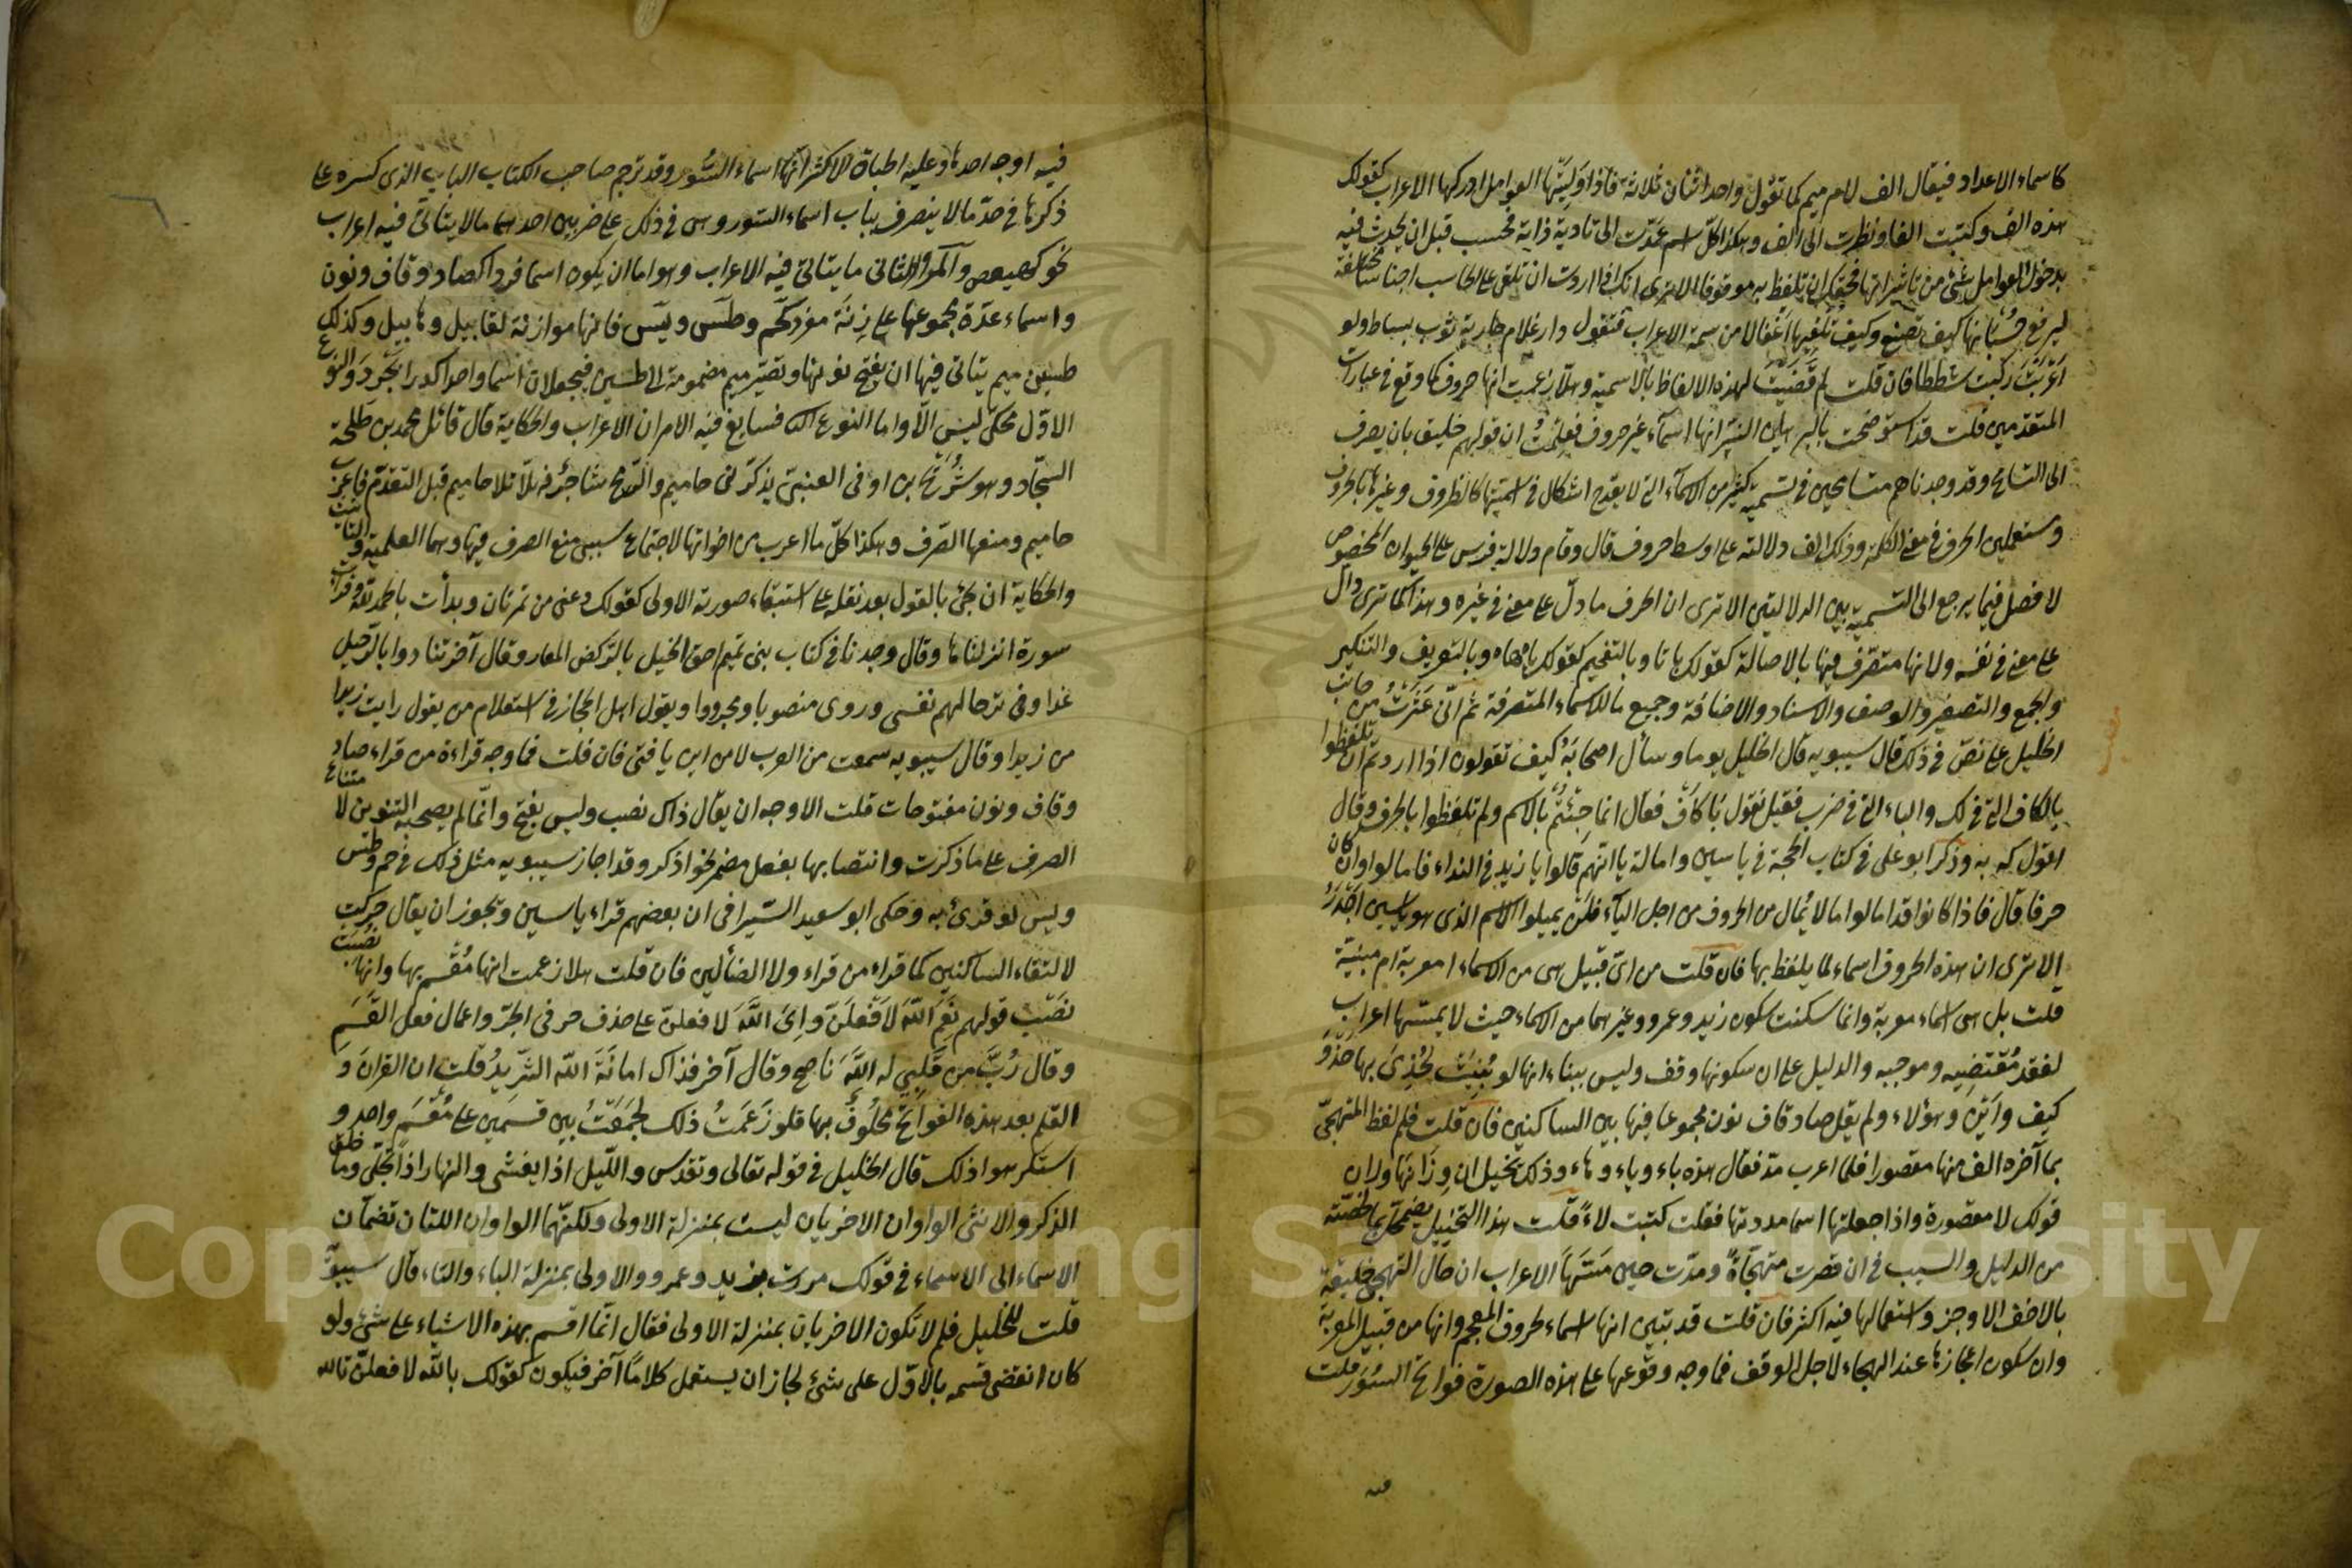 كاسماء الاعداد فيقال الف لام ميم كما تقول واحد اثنان ثلاثة فاذا وَلِيَتْها العوامل ادركها الاعراب كقولك
هذه الف وكتبت الفا ونظرت الى الف وهكذا كل اسم عمدت الى تادية ذاته فحسب قبل ان يحدث فيه
بدخول العوامل شئ من تاثيراتها فحقك ان تلفظ به موقوفا الا ترى انك اذا اردت ان تلقى على الحاسب اجناسا مختلفة
ليرفع حُسْبانها كيف تصنع وكيف تلقيها اغفالا من سمة الاعراب فتقول دار غلام جارية ثوب بساط ولو
اَعْرَبْتَ ركبت شططا فان قلت لم قضيت لهذه الالفاظ بالاسمية وهلا زعمت انها حروف كما وقع فى عبارات
المتقدمين قلت قد استوضحت بالبرهان النير انها اسماء غير حروف فعلمت ان قولهم خليق بان يصرف
الى التسامح وقد وجدناهم متسامحين فى تسمية كثير من الاسماء التى لا يقدح اشكال فى اسميتها كالظروف وغيرها بالحروف
ومستعملين الحرف فى معنى الكلمة وذلك ان الف دلالته على اوسط حروف قال وقام دلالة فرس على الحيوان المخصوص
لا فصل فيما يرجع الى التسمية بين الدلالتين الا ترى ان الحرف ما دل على معنى فى غيره وهذا كما ترى دال
على معنى فى نفسه ولانها متصرف فيها بالامالة كقولك با تا وبالتفخيم كقولك يا ها وبالتعريف والتنكير
والجمع والتصغير والوصف والاسناد والاضافة وجميع ما للاسماء المتصرفة ثم انى عَثَرْتُ من جانب
الخليل على نص فى ذلك قال سيبويه قال الخليل يوما وسأل اصحابه كيف تقولون اذا اردتم ان تلفظوا
بالكاف التى فى لك والباء التى فى ضرب فقيل نقول با كاف فقال انما جئتم بالاسم ولم تلفظوا بالحرف وقال
اقول كه به وذكر ابو على فى كتاب الحجة فى ياسين وامالة يا انهم قالوا يا زيد فى النداء فامالوا وان كان
حرفا قال فاذا كانوا قد امالوا ما لا يُمال من الحروف من اجل الياء فلان يميلوا الاسم الذى هو ياسين اجدرُ
الا ترى ان هذه الحروف اسماء لما يلفظ بها فان قلت من اى قبيل هى من الاسماء امعربة ام مبنية
قلت بل هى اسماء معربة وانما سكنت سكون زيد وعمرو وغيرهما من الاسماء حيث لا يمسها اعراب
لفقد مُقْتَضِيه وموجبه والدليل على ان سكونها وقف وليس ببناء انها لو بُنِيَتْ لحُذِىَ بها حَذْوَ
كيف واَيْنَ وهؤلاء ولم يقل صاد قاف نون مجموعا فيها بين الساكنين فان قلت فلم لفظ المتهجى
بما آخره الف منها مقصورا فلما اعرب مد فقال هذه باء وياء وهاء وذلك يخيل ان وِزَانها وزان
قولك لا مقصورة واذا جعلتها اسما مددتها فقلت كتبت لاءً قلت هذا التخييل يضمحل بما لخصته
من الدليل والسبب فى ان قصرت متهجّاةً ومدّت حين مَسَّهَا الاعراب ان حال التهجى خليقة
بالاخف الاوجز واستعمالها فيه اكثر فان قلت قد تبين انها اسماء لحروف المعجم وانها من قبيل المعربة
وان سكون اعجازها عند الهجاء لاجل الوقف فما وجه وقوعها على هذه الصورة فواتح السُوَر قلت
فيه
فيه اوجه احدها وعليه اطباق الاكثر انها اسماء السُّور وقد ترجم صاحب الكتاب الباب الذى كسره على
ذكرها فى حدّ ما لا ينصرف بباب اسماء السور وهى فى ذلك على ضربين احدهما ما لا يتأتى فيه اعراب
نحو كهيعص وآلمر والثانى ما يتاتى فيه الاعراب وهو اما ان يكون اسما فردا كصاد وقاف ونون
واسماء عدّة مجموعها على زِنَة مفرد كحم وطس ويس فانها موازنة لقابيل وهابيل وكذلك
طسين ميم يتاتى فيها ان يفتح نونها وتصير ميم مضمومة الى طسين فيجعلان اسما واحدا كدرابجرد والنوع
الاول محكى ليس الّا واما النوع الثانى فسايغ فيه الامران الاعراب والحكاية قال قاتل محمد بن طلحة
السجّاد وهو شُرَيْح بن اوفى العبسى يذكّرنى حاميم والرمح شاجرٌ فهلّا تلا حاميم قبل التقدّم فاعرب
حاميم ومنعها الصرف وهكذا كل ما اعرب من اخواتها لاجتماع سببى منع الصرف فيها وهما العلمية والتانيث
والحكاية ان تجئ بالقول بعد نقله على استبقاء صورته الاولى كقولك دعنى من تمرتان وبدأت بالحمد لله وقرأت
سورة انزلناها وقال وجدنا فى كتاب بنى تميم احق الخيل بالركض المعار وقال آخر تنادوا بالرحيل
غدا وفى ترحالهم نفسى وروى منصوبا ومجرورا ويقول اهل الحجاز فى استعلام من يقول رايت زيدا
من زيدا وقال سيبويه سمعت من العرب لا من اين يا فتى فان قلت فما وجه قراءة من قراء صاد
وقاف ونون مفتوحات قلت الاوجه ان يقال ذاك نصب وليس بفتح وانّما لم يصحبه التنوين لامتناع
الصرف على ما ذكرت وانتصابها بفعل مضمر نحو اذكر وقد اجاز سيبويه مثل ذلك فى حم وطس
ويس لو قرئ به وحكى ابو سعيد السّيرافى ان بعضهم قراء ياسين ويجوز ان يقال حركت
لالتقاء الساكنين كما قراء من قراء ولا الضألين فان قلت هلا زعمت انها مُقسَم بها وانها نُصِبَت
نَصْبَ قولهم نَعَم اللّهَ لَاَفْعَلَنّ واِىَ اللَّهَ لا فعلنّ على حذف حرف الجرّ واعمال فعل القَسَم
وقال رُبَّ من قَلْبِى له اللَّهَ ناصح وقال آخر فذاك امانَةَ اللّه الثّريدُ قلت ان القرآنَ وَ
القلم بعد هذه الفواتح محلُوفٌ بها فلو زَعَمتُ ذلك لجمَعَتُ بين قسمين على مُقْسَم واحد و
استكرهوا ذلك قال الخليل فى قوله تعالى وتقدس والليل اذا يغشى والنهار اذا تجلى وما خلق
الذكر والانثى الواوان الاخريان ليست بمنزلة الاولى ولكنهما الواوان اللتان تضمان
الاسماء الى الاسماء فى قولك مررت بزيد وعمرو والاولى بمنزلة الباء والتاء قال سيبويه
قلت للخليل فلم لا تكون الاخريان بمنزلة الاولى فقال انّما اقسم بهذه الاشياء على شئ ولو
كان انقضى قسمه بالاوّل على شئ لجاز ان يستعمل كلامًا آخر فيكون كقولك باللّه لا فعلنّ تالله
Copyright © King Saud University